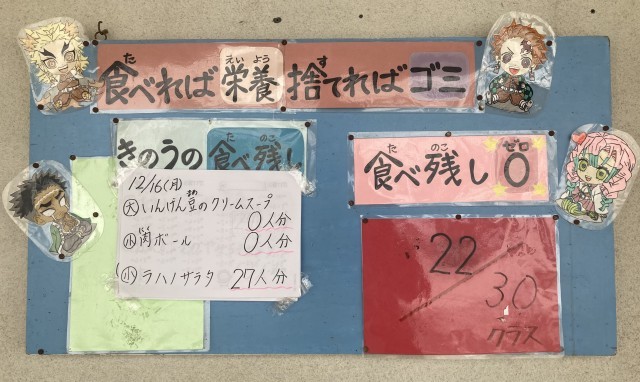 食べれば栄養 捨てればゴミ
きのうの食べ残し
12/16(月)
大 いんげん豆のクリームスープ
0人分
小 肉ボール
0人分
小 ラハノサラタ 27人分
食べ残し0
22
30
クラス